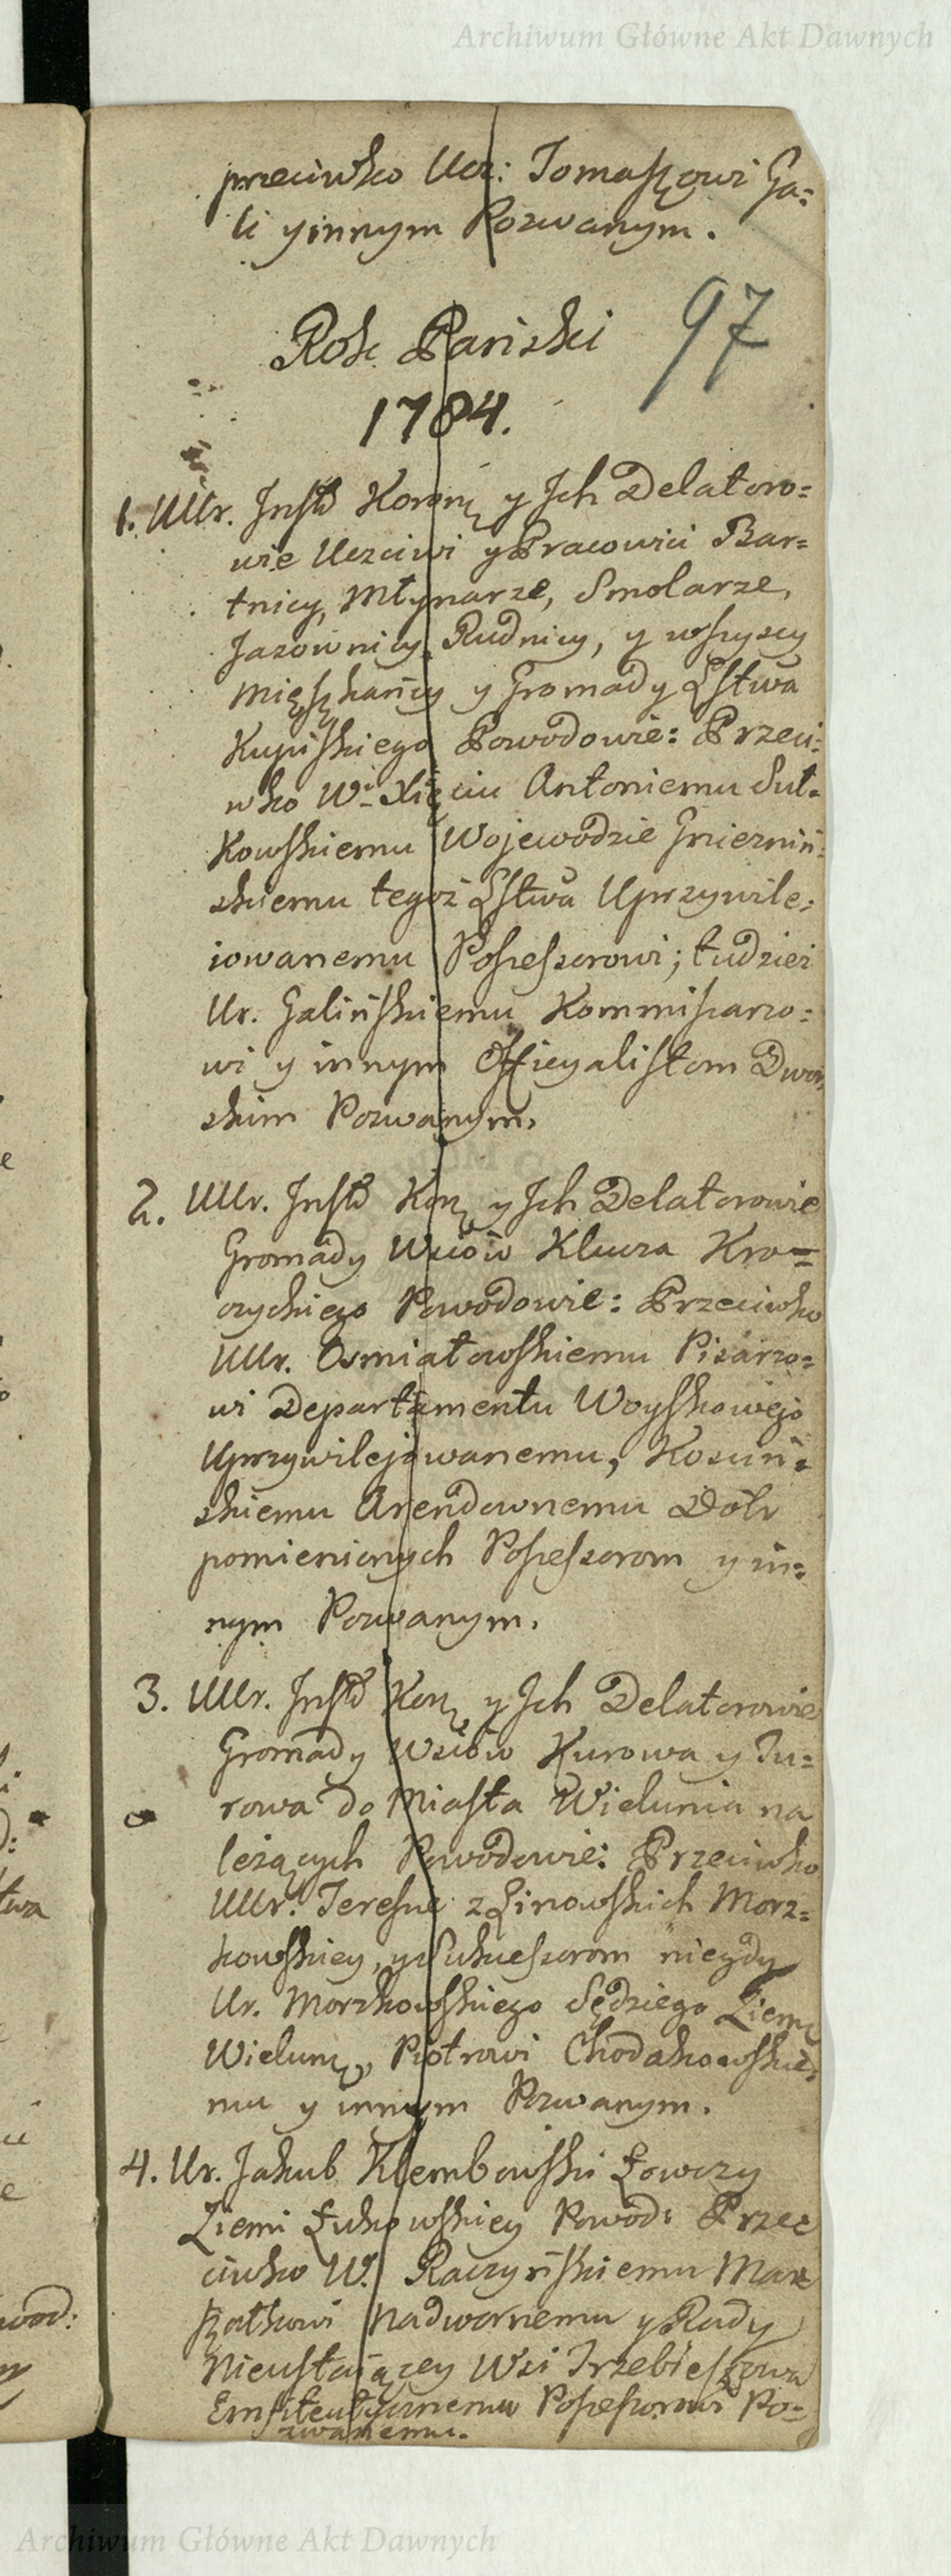 Archiwum Główne Akt Dawnych
przeciwko Ucz: Tomaszowi Ga=
li y innym Pozwanym.
97
Rok Pański
1784.
1. UUr. Instr Koronı y Jch Delatoro=
wie Uczciwi y Pracowici Bar=
tnicy, Młynarze, Smolarze,
Jazownicy, Rudnicy, y wszyscy
Mięszkańcy y Gromady Lstwa
Kupiskiego Powodowie: Przeci=
wko W. Xięciu Antoniemu Suł=
Kowskiemu Wojewodzie Gnieźniń=
skiemu tegoż Lstwa Uprzywile=
iowanemu Possessorowi; tudzież
Ur. Galińskiemu Kommissarzo=
wi y innym Officyalistom Dwor
skim Pozwanym.
2. UUr. Instr Kor y Jch Delatorowie
Gromady Wsiów Klucza Kro=
czyckiego Powodowie: Przeciwko
UUr. Osmiałowskiemu Pisarzo=
wi Departamentu Woyskowego
Uprzywilejowanemu, Kosiń=
skiemu Arendownemu Dóbr
pomienionych Possessorom y in=
nym Pozwanym.
3. UUr. Instr Kor y Jch Delatorowie
Gromady Wsiów Kurowa y Tu=
rowa do Miasta Wielunia na
leżących Powodowie: Przeciwko
UUr. Teressie z Linowskich Morz=
kowskiey, y Sukcessorom niegdy
Ur. Morzkowskiego Sędziego Ziem
Wielun, Piotrowi Chodakowskie=
mu y innym Pozwanym.
4. Ur. Jakub Klembowski Łowczy
Ziemi Łukowskiey Powod: Prze=
ciwko W. Raczyńskiemu Mar
szałkowi Nadwornemu y Rady
Nieustaiącey Wsi Trzebieszowa
Emfiteutycznemu Possessorowi Po=
zwanemu.
Archiwum Główne Akt Dawnych